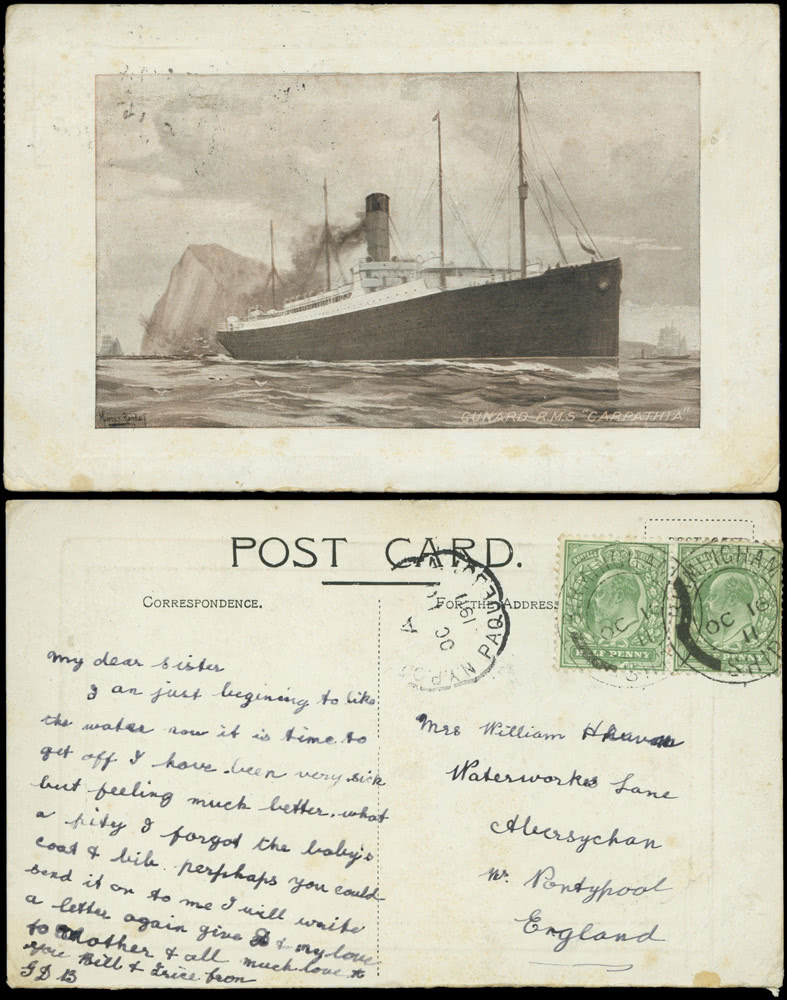 CUNARD R.M.S "CARPATHIA"
POST CARD.
CORRESPONDENCE.
FOR THE ADDRESS
PAQUEBOT
N.Y.P.O.
OC
1911
A
OC 16
11
SHIP
HALF PENNY
BIRMINGHAM
OC 16
11
SHIP
My dear Sister
I an just begining to like
the water now it is time to
get off I have been very sick
but feeling much better. what
a pity I forgot the baby's
coat & bib. perphaps you could
send it on to me I will write
a letter again give & my love
to Mother & all much love to
you Bill & from
G D B
Mrs William
Waterworks Lane
Abersychan
Nr. Pontypool
England